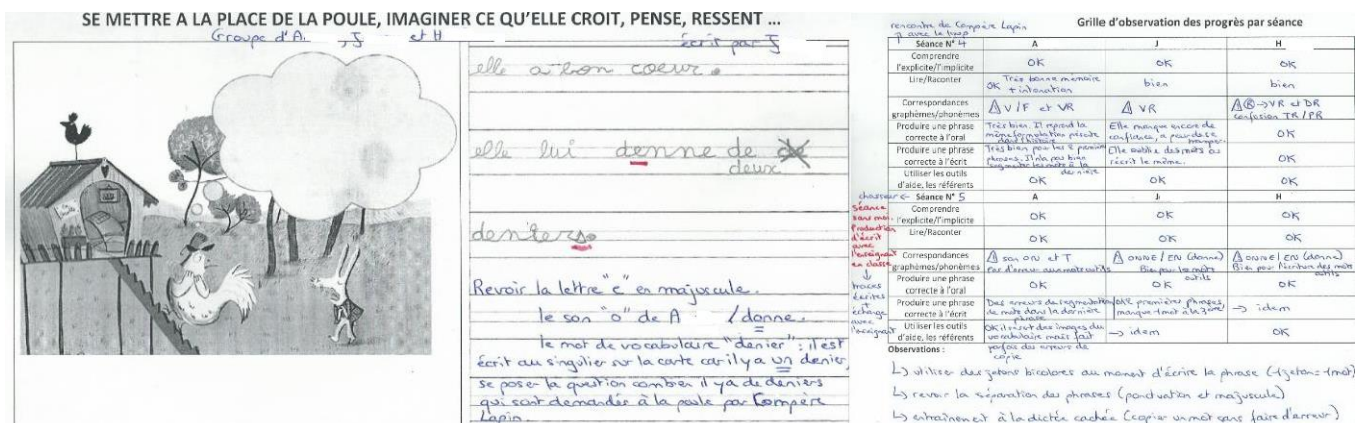 SE METTRE A LA PLACE DE LA POULE, IMAGINER CE QU'ELLE CROIT, PENSE, RESSENT ...
Groupe d'A. , J et H
écrit par J
elle a bon coeur.
elle lui denne de
deux
deniers.
Revoir la lettre "e" en majuscule.
le son "o" de A /donne.
le mot de vocabulaire "denier" : il est
écrit au singulier sur la carte car il y a un denier,
se poser la question combien il y a de deniers
qui sont demandés à la poule par Compère
Lapin.
rencontre de Compère Lapin
avec le loup
Grille d'observation des progrès par séance
Séance N° 4 A J H
Comprendre l'explicite/l'implicite OK OK OK
Lire/Raconter OK Très bonne mémoire + intonation bien bien
Correspondances graphèmes/phonèmes V/F et VR VR R → VR et DR confusion TR/PR
Produire une phrase correcte à l'oral Très bien. Il reprend la même formulation précise dans l'histoire Elle manque encore de confiance, a peur de se tromper. OK
Produire une phrase correcte à l'écrit Très bien pour les 2 premières phrases. Il n'a pas bien segmenté les mots à la dernière Elle oublie des mots ou récrit le même. OK
Utiliser les outils d'aide, les référents OK OK OK
chasseur ← Séance N° 5 A J H
Comprendre l'explicite/l'implicite OK OK OK
Lire/Raconter OK OK OK
Correspondances graphèmes/phonèmes son ON et T Pas d'erreur aux mots outils ONNE/EN (donne) Bien pour les mots outils ONNE/EN (donne) Bien pour l'écriture des mots outils
Produire une phrase correcte à l'oral OK OK OK
Produire une phrase correcte à l'écrit Des erreurs de segmentation de mots dans la dernière phrase OK 2 premières phrases, manque 1 mot à la 3ème → idem
Utiliser les outils d'aide, les référents OK il se sert des images du vocabulaire mais fait parfois des erreurs de copie → idem OK
Séance
sans moi.
Production
d'écrit
avec
l'enseignant
en classe
↓
traces
écrites +
échange
avec
l'enseignant
Observations :
↳ utiliser des jetons bicolores au moment d'écrire la phrase (1 jeton = 1 mot)
↳ revoir la séparation des phrases (ponctuation et majuscule)
↳ entraînement à la dictée cachée (copier un mot sans faire d'erreur)